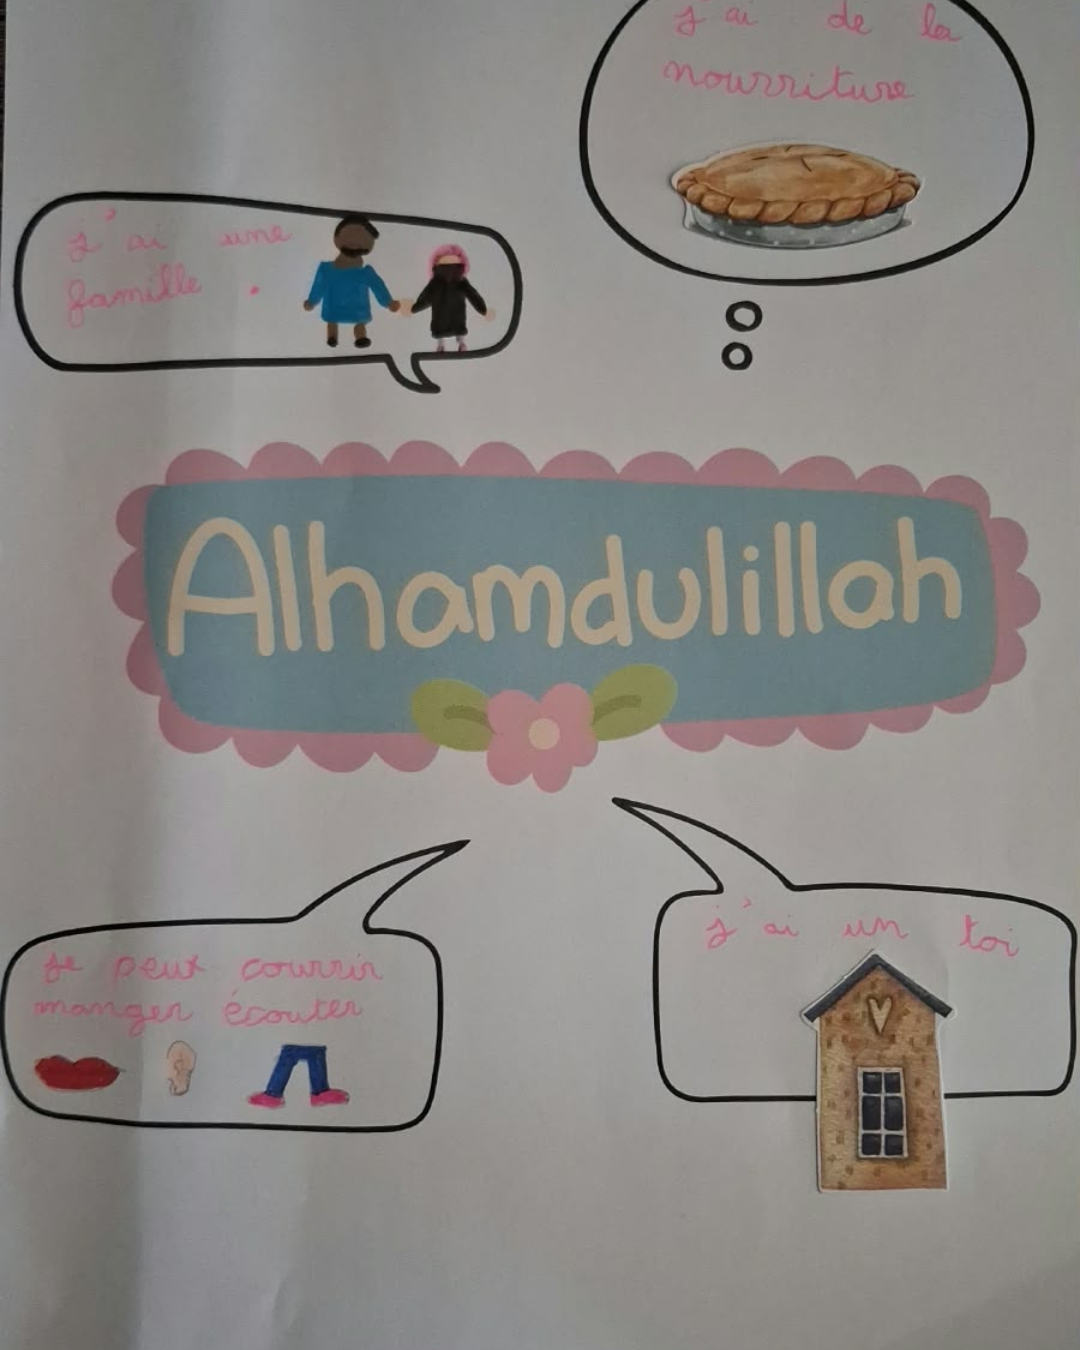 j'ai de la
nourriture
j'ai une
famille.
Alhamdulillah
je peux courrir
manger écouter
j'ai un toi